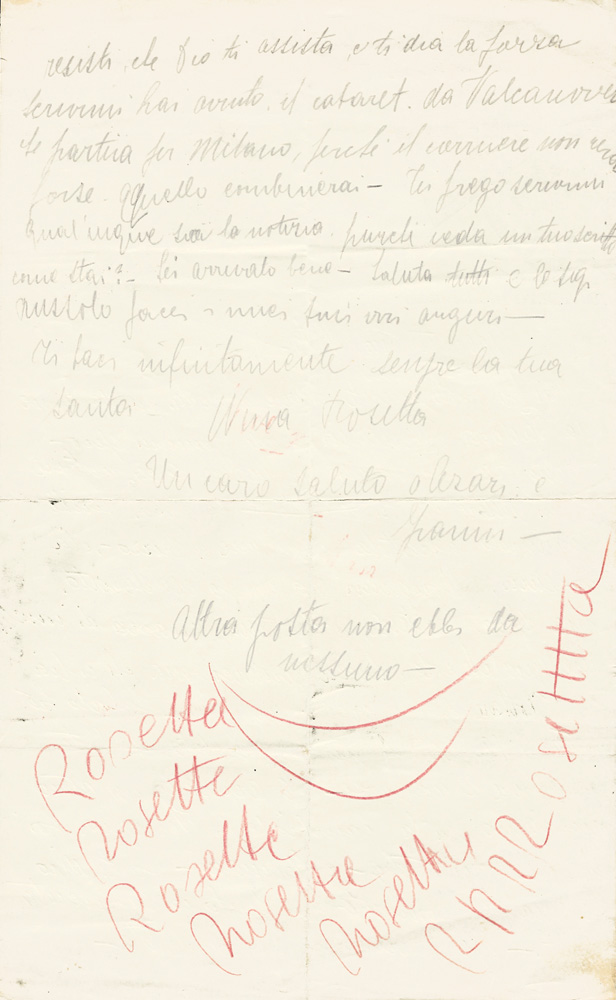 resisti, che Dio ti assista, e ti dia la forza
scrivimi hai avuto il cabaret. da
Se partiva per Milano, perché il corriere non
forse. Quello combinerai — Ti prego scrivimi
qual'unque sia la notizia. purché veda un tuo scritto
come stai? — Sei arrivato bene — Saluta tutti e le sig.
miei auguri —
Ti baci infinitamente sempre la tua
santa. Rosetta
Un caro saluto a Cesare e
Gianni —
Altra posta non ebbi da
nessuno —
Rosetta
Rosette
Rosette
Rosette
Rosette
R R R Rosettta